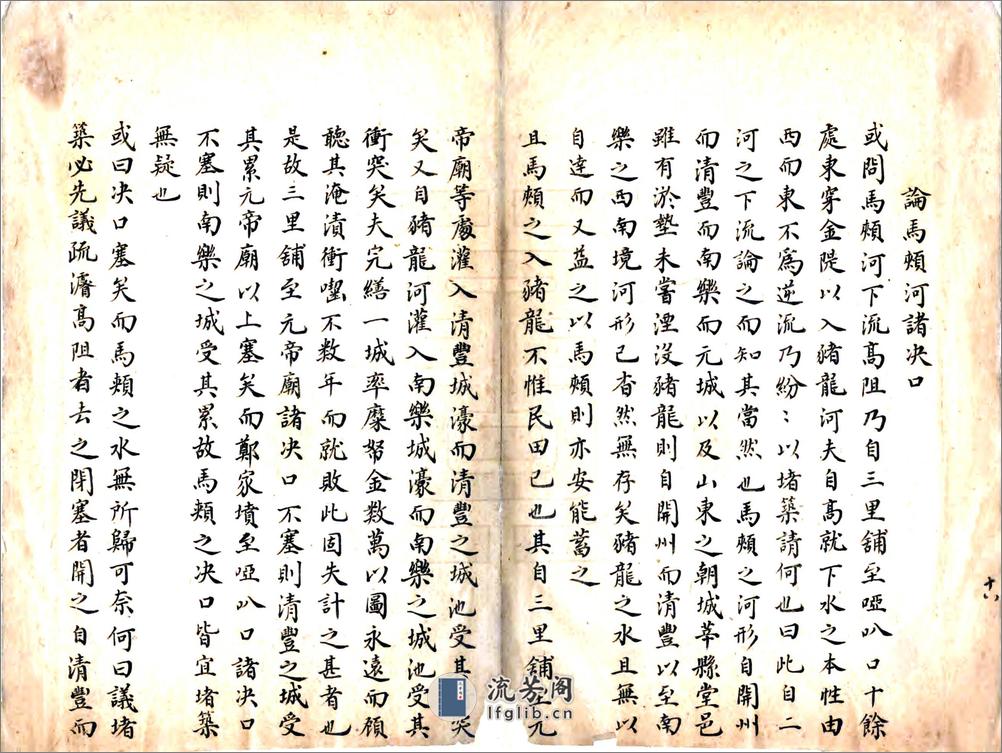 論馬頰河諸決口
或問馬頰河下流高阻乃自三里舖至啞叭口十餘
處東穿金隄以入豬龍河夫自高就下水之本性由
西而東不為逆流乃紛〻以堵築請何也曰此自二
河之下流論之而知其當然也馬頰之河形自開州
而清豐而南樂而元城以及山東之朝城莘縣堂邑
雖有淤墊未嘗湮沒豬龍則自開州而清豐以至南
樂之西南境河形已杳然無存矣豬龍之水且無以
自達而又益之以馬頰則亦安能蓄之
且馬頰之入豬龍不惟民田已也其自三里舖至元
帝廟等處灌入清豐城濠而清豐之城池受其衝突
矣又自豬龍河灌入南樂城濠而南樂之城池受其
衝突矣夫完繕一城率糜帑金数萬以圖永遠而顧
聽其淹漬衝嚙不数年而就敗此固失計之甚者也
是故三里舖至元帝廟諸決口不塞則清豐之城受
其累元帝廟以上塞矣而鄭家墳至啞叭口諸決口
不塞則南樂之城受其累故馬頰之決口皆宜堵築
無疑也
或曰決口塞矣而馬頰之水無所歸可奈何曰議堵
築必先議疏濬高阻者去之閉塞者開之自清豐而
十八
流芳阁
lfglib.cn